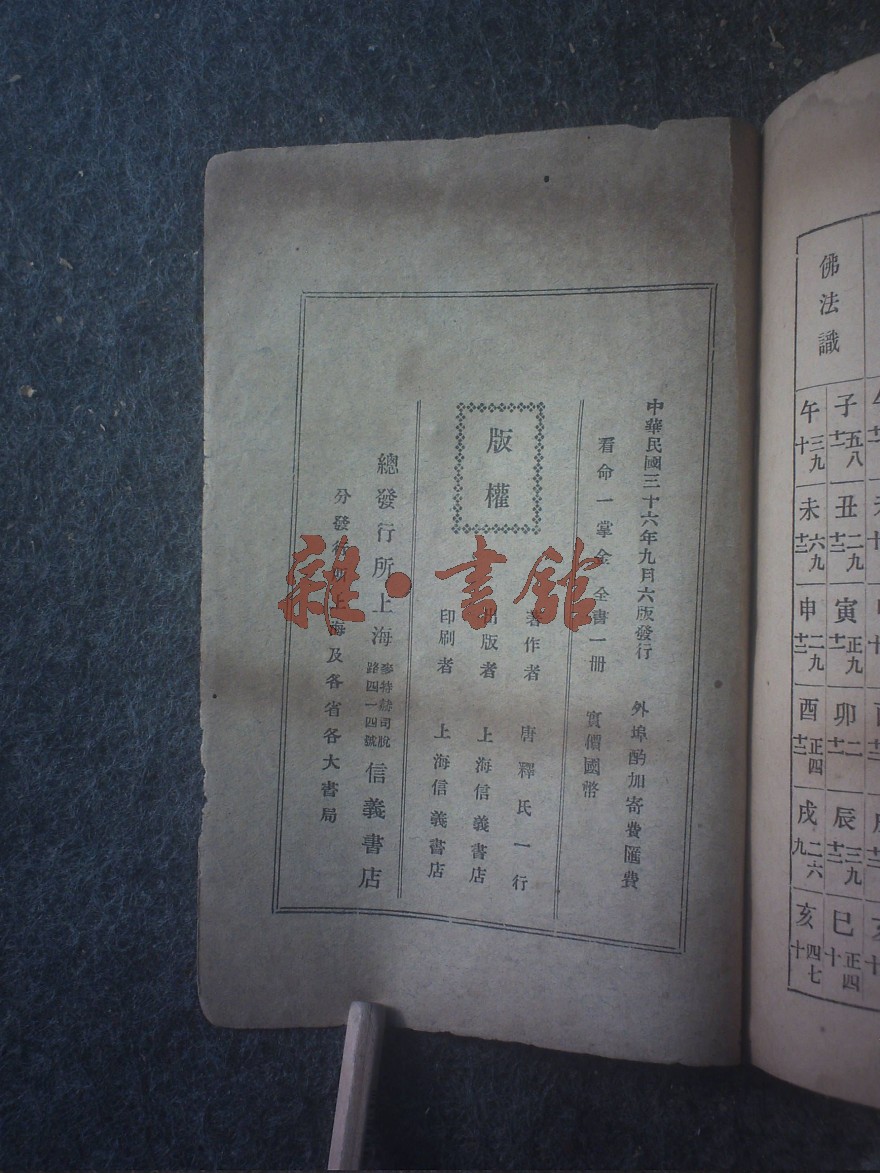 中華民國三十六年九月六版發行
外埠酌加寄費匯費
看命一掌金 全書一册
實價國幣
版權
著作者 唐釋氏一行
出版者 上海信義書店
印刷者 上海信義書店
總發行所上海
麥特赫司脫
路四一四號
信義書店
分發行所上海及各省各大書局
雜·書館
佛法識
子 五八 十一
丑 二九 十二
寅 正九 十一
卯 二 十一
辰 三九 十二
巳 正四 十
午 三九 十
未 六九 十二
申 二九 十二
酉 正四 十二
戌 二六 九
亥 四七 十